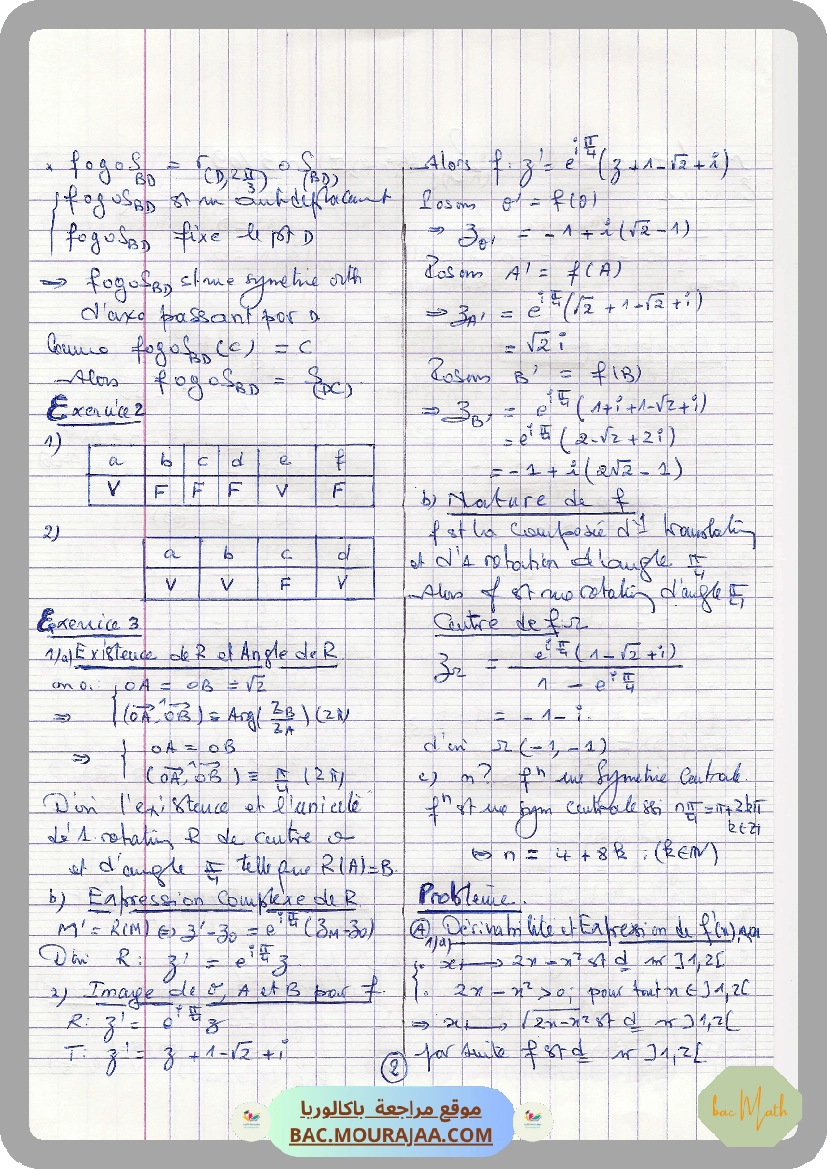 * fogoS_BD = r_(D, 2π/3) o S_(BD)
{ fogoS_BD est un antidéplacement
fogoS_BD fixe le pt D
⇒ fogoS_BD est une symétrie orth
d'axe passant par D
Comme fogoS_BD (C) = C
Alors fogoS_BD = S_(DC).
Exercice 2
1)
a b c d e f
V F F F V F
2)
a b c d
V V F V
Exercice 3
1)a) Existence de R et Angle de R.
on a: { OA = OB = √2
⇒ (OA, OB) ≡ Arg(z_B/z_A) (2π)
⇒ { OA = OB
(OA, OB) ≡ π/4 (2π)
D'où l'existence et l'unicité
de 1 rotation R de centre O
et d'angle π/4 telle que R(A) = B.
b) Expression Complexe de R
M' = R(M) ⇔ z' - z_0 = e^{iπ/4} (z_M - z_0)
D'où R: z' = e^{iπ/4} z.
2) Image de O, A et B par f.
R: z' = e^{iπ/4} z
T: z' = z + 1 - √2 + i
Alors f: z' = e^{iπ/4} (z + 1 - √2 + i)
Posons O' = f(O)
⇒ z_O' = -1 + i(√2 - 1)
Posons A' = f(A)
⇒ z_A' = e^{iπ/4} (√2 + 1 - √2 + i)
= √2 i
Posons B' = f(B)
⇒ z_B' = e^{iπ/4} (1 + i + 1 - √2 + i)
= e^{iπ/4} (2 - √2 + 2i)
= -1 + i(2√2 - 1)
b) Nature de f
f est la composée d'1 translation
et d'1 rotation d'angle π/4
Alors f est une rotation d'angle π/4
Centre de f Ω
z_Ω = e^{iπ/4} (1 - √2 + i) / (1 - e^{iπ/4})
= -1 - i.
d'où Ω(-1, -1)
c) n? f^n une Symétrie Centrale.
f^n est une sym centrale ssi nπ/4 = π + 2kπ
k ∈ Z
⇔ n = 4 + 8k ; (k ∈ IN)
Problème.
(A) Dérivabilité et Expression de f'(x)
1)a)
{ . x ↦ 2x - x² est d sur ]1,2[
. 2x - x² > 0; pour tout x ∈ ]1,2[
⇒ x ↦ √(2x - x²) est d sur ]1,2[
par suite f est d sur ]1,2[
2
موقع مراجعة باكالوريا
BAC.MOURAJAA.COM
bac Math